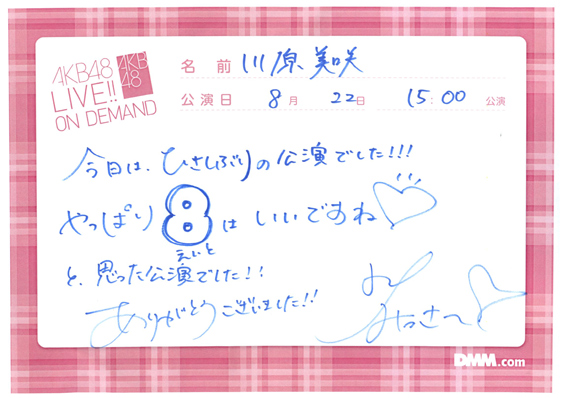 AKB48
LIVE!!
ON DEMAND
AKB
48
名 前 川原美咲
公演日 8月 22日 15:00 公演
今日は、ひさしぶりの公演でした!!!
やっぱり 8 はいいですね
えいと
と、思った公演でした!!
ありがとうございました!!
みっきー
DMM.com